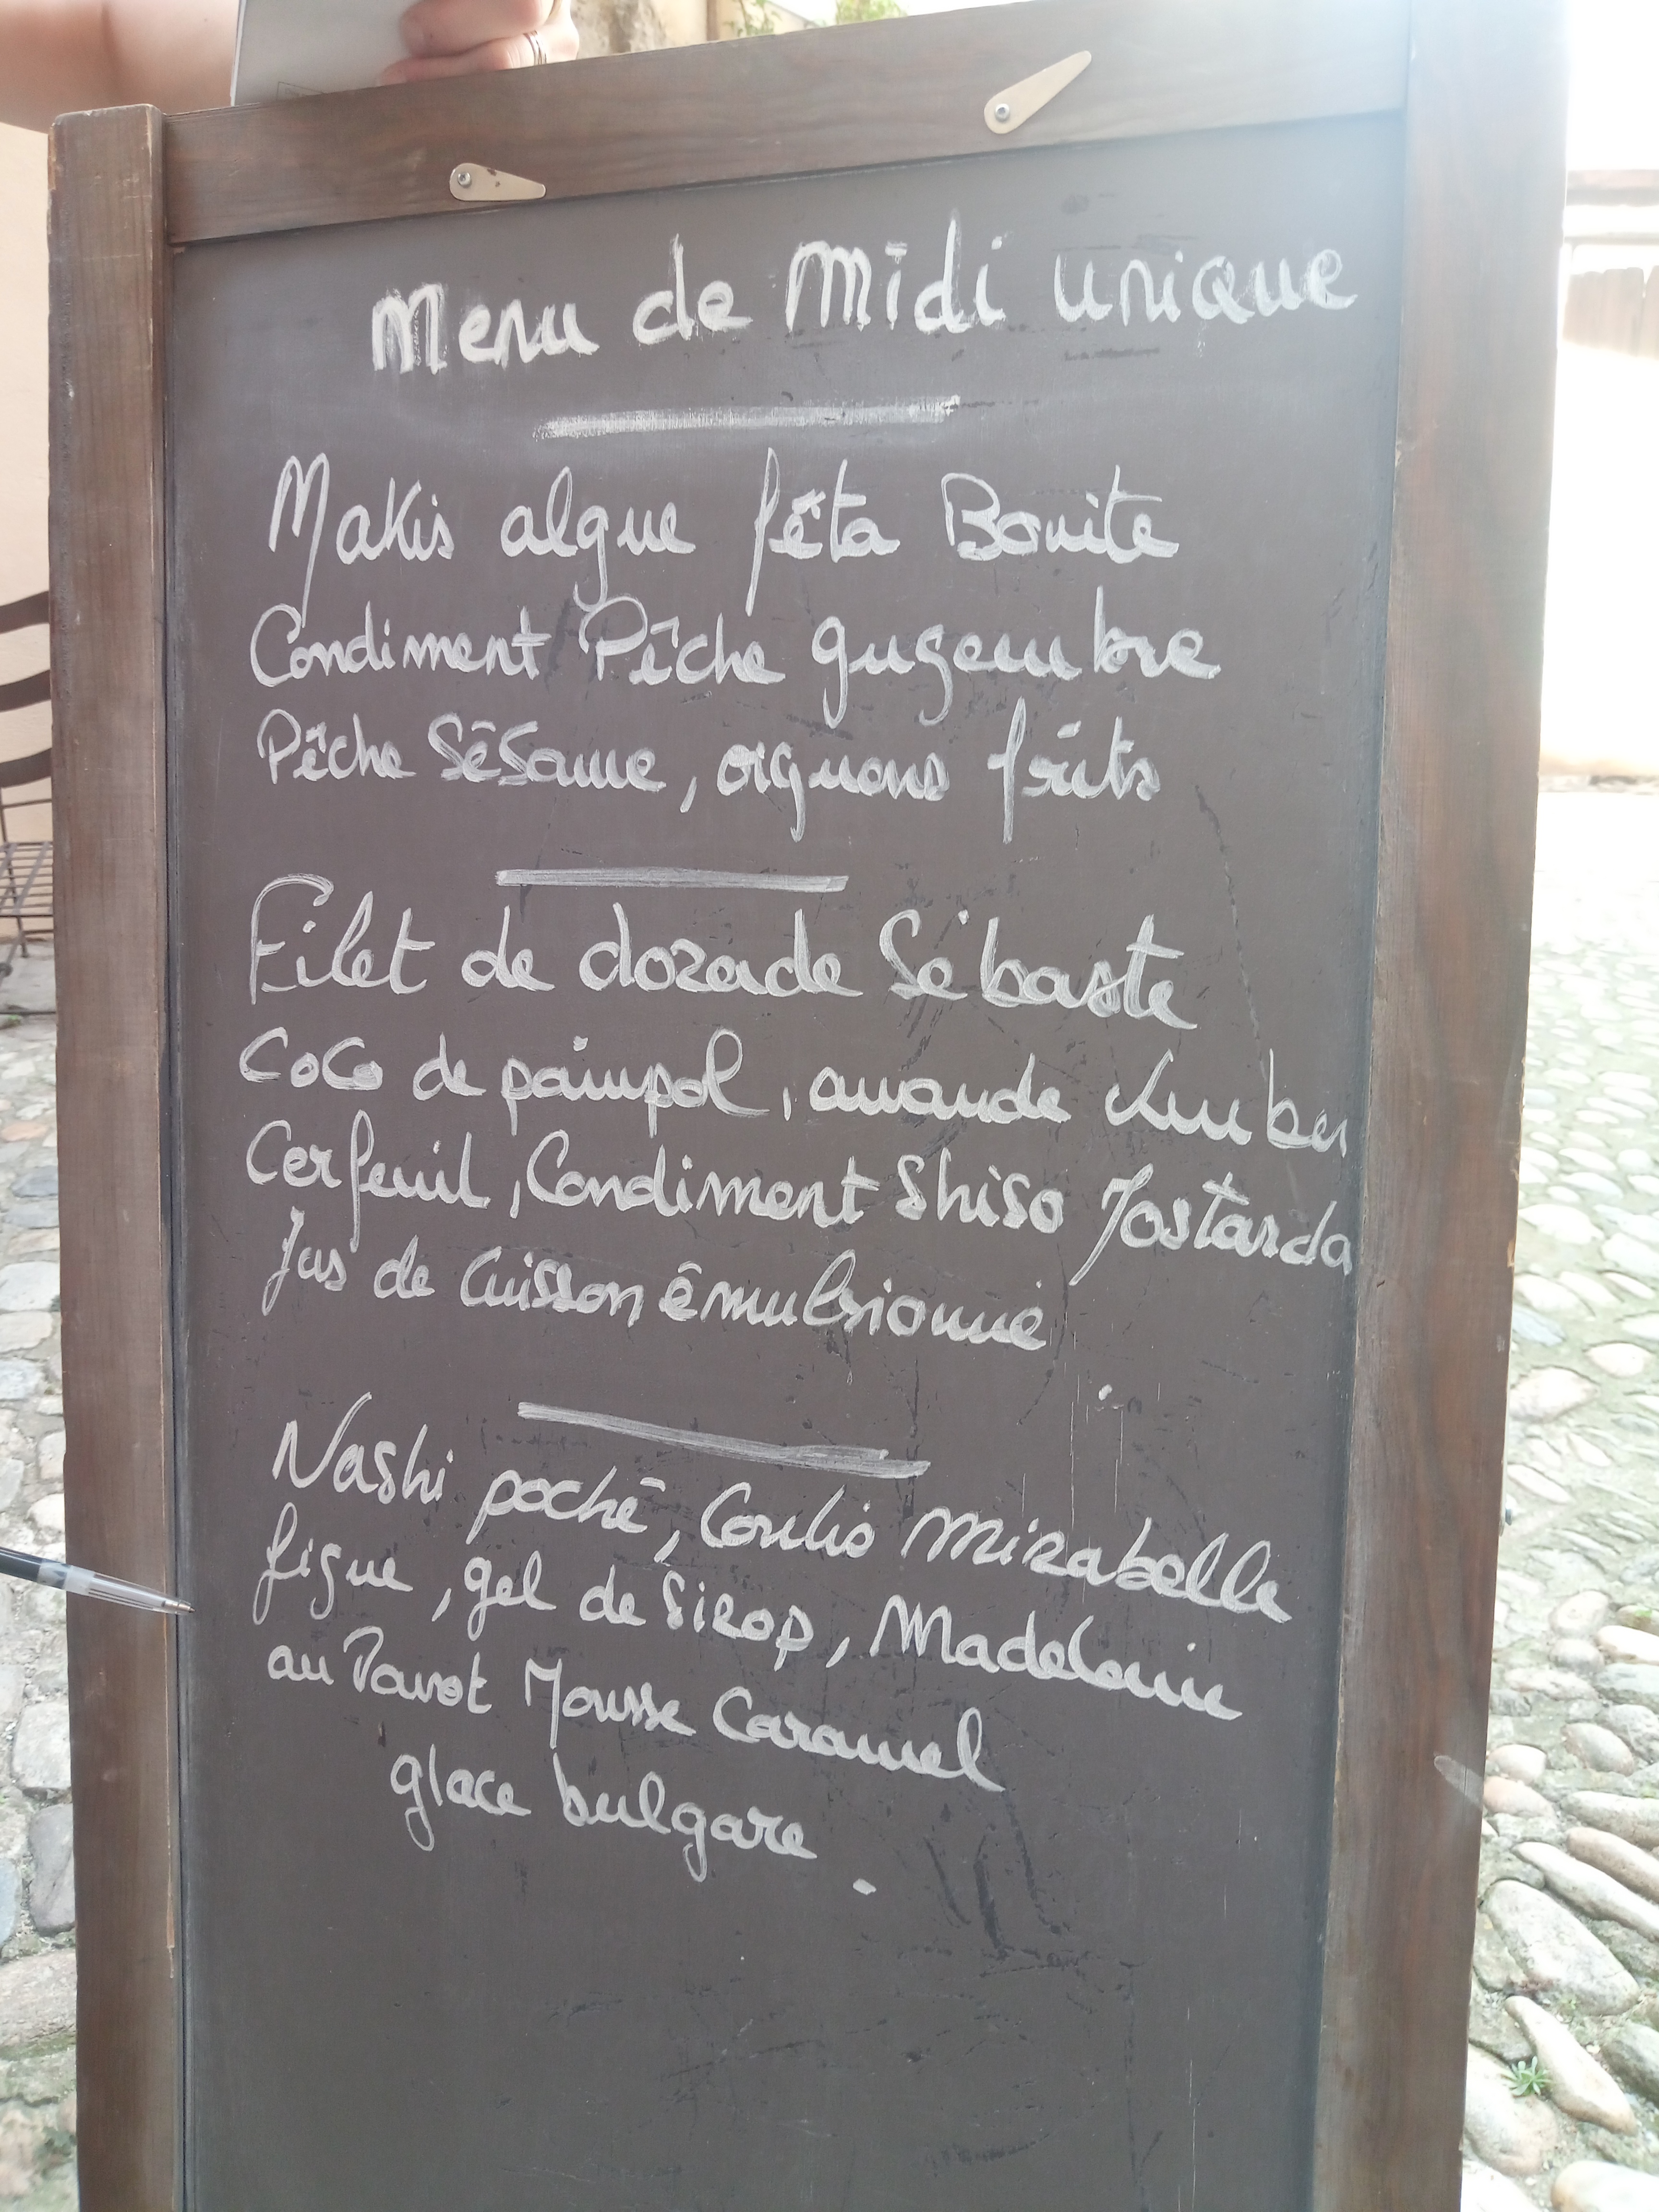 Menu de Midi unique
Makis algue fêta Bonite
Condiment Pêche gingembre
Pêche Sésame, oignons frits
Filet de dorade Sébaste
Coco de paimpol, amande
Cerfeuil, Condiment Shiso Mostarda
Jus de Cuisson émulsionné
Nashi poché, Coulis Mirabelle
figue, gel de Sirop, Madeleine
au Pavot Mousse Caramel
glace bulgare.